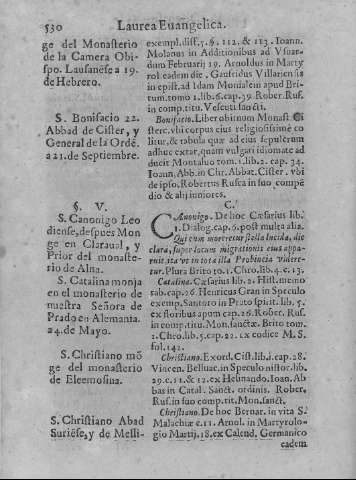 530 Laurea Euangelica.
ge del Monasterio
de la Camera Obi-
spo. Lausanēse a 19.
de Hebrero.
S. Bonifacio 22.
Abbad de Cister, y
General de la Ordē.
a 21. de Septiembre.
§. V.
S. Canonigo Leo
diense, despues Mon
ge en Claraual, y
Prior del monaste-
rio de Alna.
S. Catalina monja
en el monasterio de
nuestra Señora de
Prado en Alemania.
24. de Mayo.
S. Christiano mō
ge del monasterio
de Eleemosina.
S. Christiano Abad
Suriēse, y de Melli-
exempl. dist. 5. §. 112. & 113. Ioann.
Molanus in Additionibus ad Vsuar-
dum Februarij 19. Arnoldus in Marty
rol. eadem die. Gaufridus Villariensis
in epist. ad Idam Monialem apud Bri-
tum. tomo 1. lib. 6. cap. 39. Rober. Rus.
in comp. titu. Vesciti sancti.
Bonifacio. Liber obituum Monast. Ci
sterc. vbi corpus eius religiosissimè co
litur, & tabula quæ ad eius sepulcrum
adhuc extat, quam vulgari idiomate ad
ducit Montaluo tom. 1. lib. 2. cap. 34.
Ioann. Abb. in Chr. Abbat. Cister. vbi
de ipso. Robertus Rusca in suo compē
dio & alij iuniores.
C.
CAnonigo. De hoc Cæsarius lib.
1. Dialog. cap. 6. post multa alia.
Qui cum moreretur stella lucida, die
clara, super locum migrationis eius appa-
ruit, ita vt in tota illa Prouincia videre-
tur. Plura Brito to. 1. Chro. lib. 4. c. 13.
Catalina. Cæsarius lib. 2. Hist. memo
rab. cap. 26. Henricus Gran in Speculo
exemp. Santoro in Prato spirit. lib. 5.
ex floribus apum cap. 26. Rober. Rus.
in comp. titu. Mon. sanctæ. Brito tom.
1. Chro. lib. 5. cap. 22. ex codice M. S.
fol. 142.
Christiano. Exord. Cist. lib. 1. cap. 28.
Vincen. Belluac. in Speculo histor. lib.
29. c. 11. & 12. ex Helinando. Ioan. Ab
bas in Catal. Sanct. ordinis. Rober.
Rus. in suo comp. tit. Mon. sanct.
Christiano. De hoc Bernar. in vita S.
Malachiæ c. 11. Arnol. in Martyrolo-
gio Martij. 18. ex Calend. Germanico
eadem